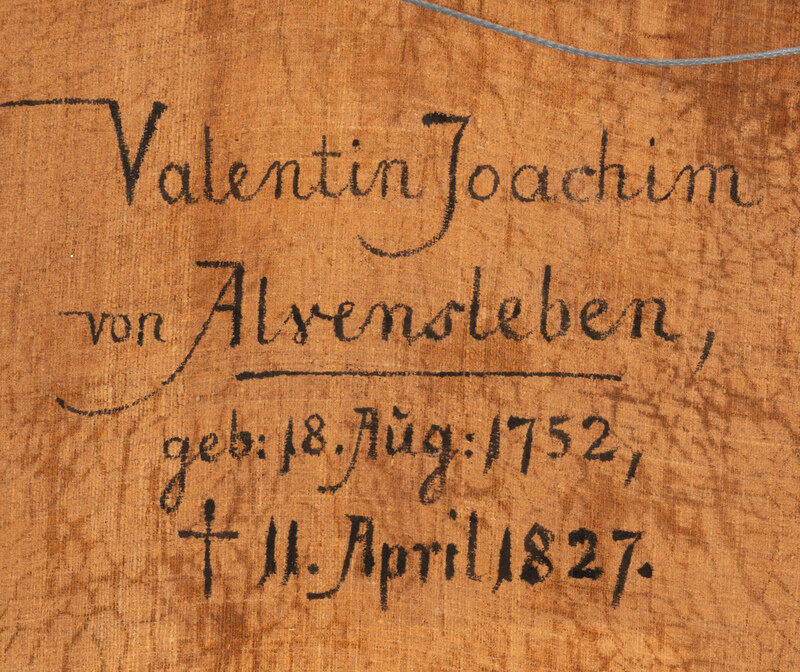 Valentin Joachim
von Alvensleben,
geb: 18. Aŭg: 1752,
† 11. April 1827.